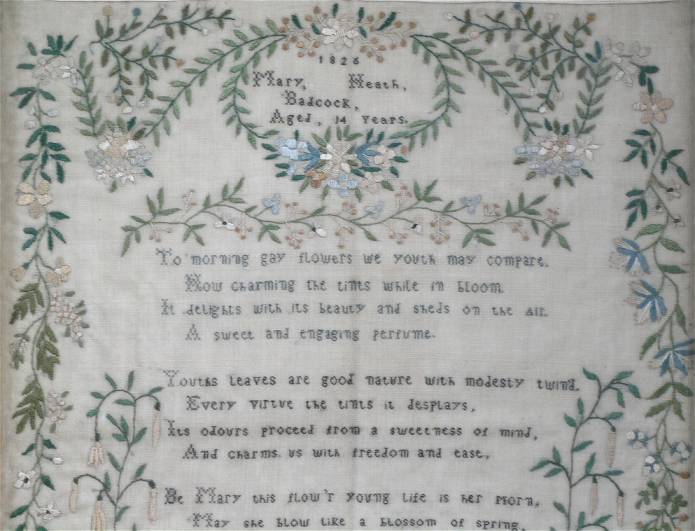 1826
Mary, Heath,
Badcock,
Aged, 14 Years.
To morning gay flowers we youth may compare.
How charming the tints while in bloom
It delights with its beauty and sheds on the air
A sweet and engaging perfume.
Youths leaves are good nature with modesty twind.
Every virtue the tints it desplays,
Its odours proceed from a sweetness of mind,
And charms us with freedom and ease,
Be Mary this flow'r young life is her Morn,
May she blow like a blossom of spring,